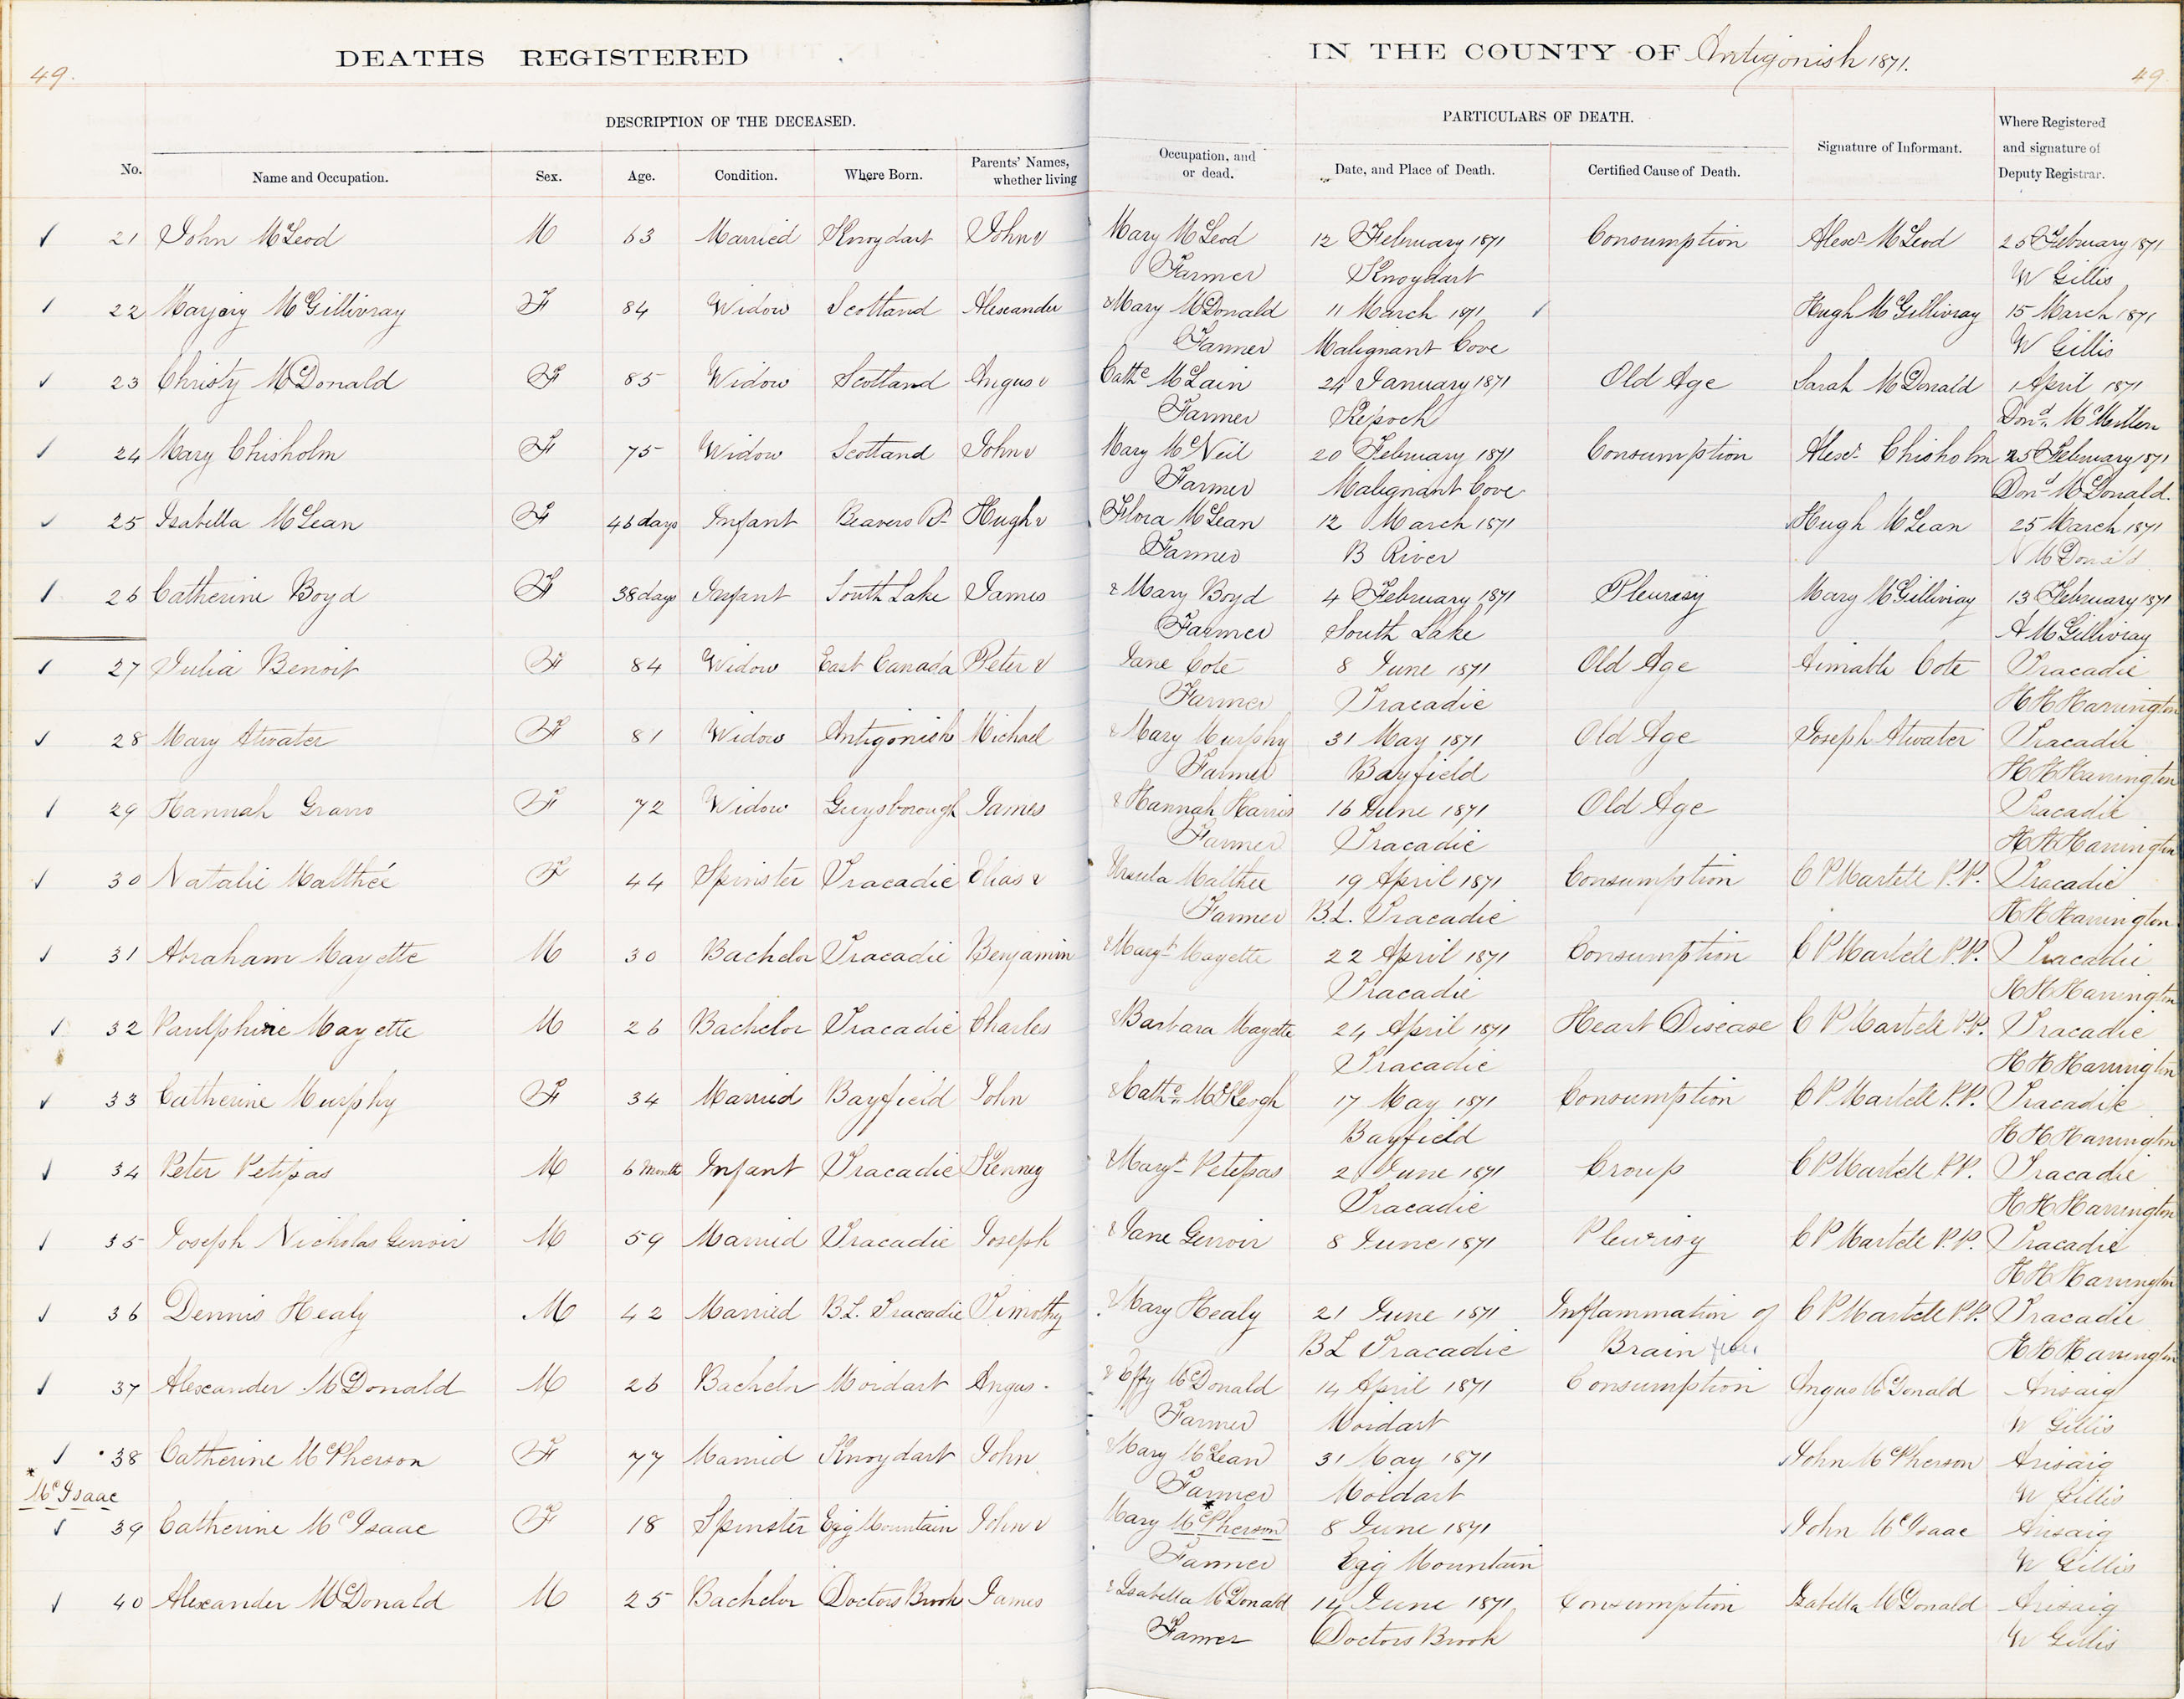 49.
DEATHS REGISTERED
IN THE COUNTY OF Antigonish 1871.
49
DESCRIPTION OF THE DECEASED.
PARTICULARS OF DEATH.
No.
Name and Occupation.
Sex.
Age.
Condition.
Where Born.
Parents' Names, whether living
Occupation, and or dead.
Date, and Place of Death.
Certified Cause of Death.
Signature of Informant.
Where Registered and signature of Deputy Registrar.
21 John McLeod M 63 Married Knoydart John & Mary McLeod 12 February 1871 Consumption Alexr McLeod 25 February 1871
Farmer Knoydart W Gillis
22 Marjory McGillivray F 84 Widow Scotland Alexander & Mary McDonald 11 March 1871 Hugh McGillivray 15 March 1871
Farmer Malignant Cove W Gillis
23 Christy McDonald F 85 Widow Scotland Angus & Cathe McLain 24 January 1871 Old Age Sarah McDonald 1 April 1871
Farmer Kepoch Dond McMillen
24 Mary Chisholm F 75 Widow Scotland John & Mary McNeil 20 February 1871 Consumption Alexr Chisholm 25 February 1871
Farmer Malignant Cove Dond McDonald.
25 Isabella McLean F 46 days Infant Beavers R. Hugh & Flora McLean 12 March 1871 Hugh McLean 25 March 1871
Farmer B River McDonald
26 Catherine Boyd F 38 days Infant South Lake James & Mary Boyd 4 February 1871 Pleurisy Mary McGillivray 13 February 1871
Farmer South Lake A McGillivray
27 Julia Benoit F 84 Widow East Canada Peter & Jane Cote 8 June 1871 Old Age Aimable Cote Tracadie
Farmer Tracadie H H Harrington
28 Mary Atwater F 81 Widow Antigonish Michael & Mary Murphy 31 May 1871 Old Age Joseph Atwater Tracadie
Farmer Bayfield H H Harrington
29 Hannah Gravo F 72 Widow Guysborough James & Hannah Harris 16 June 1871 Old Age Tracadie
Farmer Tracadie H H Harrington
30 Natalie Malthée F 44 Spinster Tracadie Elias & Ursula Malthee 19 April 1871 Consumption C P Martell P.P. Tracadie
Farmer B.L. Tracadie H H Harrington
31 Abraham Mayette M 30 Bachelor Tracadie Benjamin & Margt Mayette 22 April 1871 Consumption C P Martell P.P. Tracadie
Tracadie H H Harrington
32 Paulphine Mayette M 26 Bachelor Tracadie Charles & Barbara Mayette 24 April 1871 Heart Disease C P Martell P.P. Tracadie
Tracadie H H Harrington
33 Catherine Murphy F 34 Married Bayfield John & Cathe McKeogh 17 May 1871 Consumption C P Martell P.P. Tracadie
Bayfield H H Harrington
34 Peter Petipas M 6 Month Infant Tracadie Kenney & Margt Petipas 2 June 1871 Croup C P Martell P.P. Tracadie
Tracadie H H Harrington
35 Joseph Nicholas Gerroir M 59 Married Tracadie Joseph & Jane Gerroir 8 June 1871 Pleurisy C P Martell P.P. Tracadie
H H Harrington
36 Dennis Healy M 42 Married B.L. Tracadie Timothy & Mary Healy 21 June 1871 Inflammation of C P Martell P.P. Tracadie
BL Tracadie Brain H H Harrington
37 Alexander McDonald M 26 Bachelor Moidart Angus & Effy McDonald 14 April 1871 Consumption Angus McDonald Arisaig
Farmer Moidart W Gillis
38 Catherine McPherson F 77 Married Knoydart John & Mary McLean 31 May 1871 John McPherson Arisaig
* McIsaac Farmer Moidart W Gillis
39 Catherine McIsaac F 18 Spinster Egg Mountain John & Mary McPherson * 8 June 1871 John McIsaac Arisaig
Farmer Egg Mountain W Gillis
40 Alexander McDonald M 25 Bachelor Doctors Brook James & Isabella McDonald 14 June 1871 Consumption Isabella McDonald Arisaig
Farmer Doctors Brook W Gillis